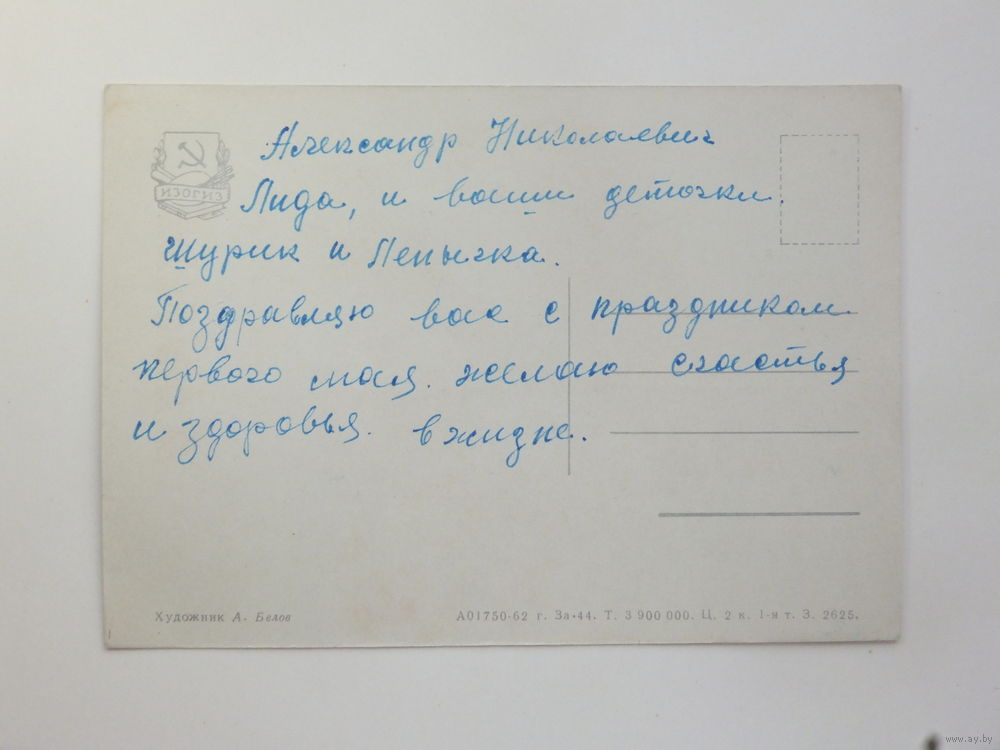 ИЗОГИЗ
Александр Николаевич
Лида, и ваши деточки.
Шурик и Леньчка.
Поздравляю вас с праздником
первого мая. желаю счастья
и здоровья. в жизне.
Художник А. Белов
А01750-62 г. За-44. Т. 3 900 000. Ц. 2 к. 1-я т. З. 2625.
www.ay.by